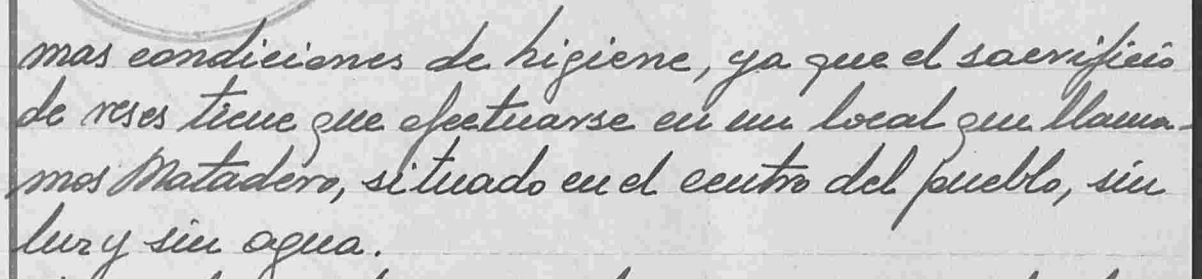 mas condiciones de higiene, ya que el sacrificio
de reses tiene que efectuarse en un local que llama-
mos Matadero, situado en el centro del pueblo, sin
luz y sin agua.